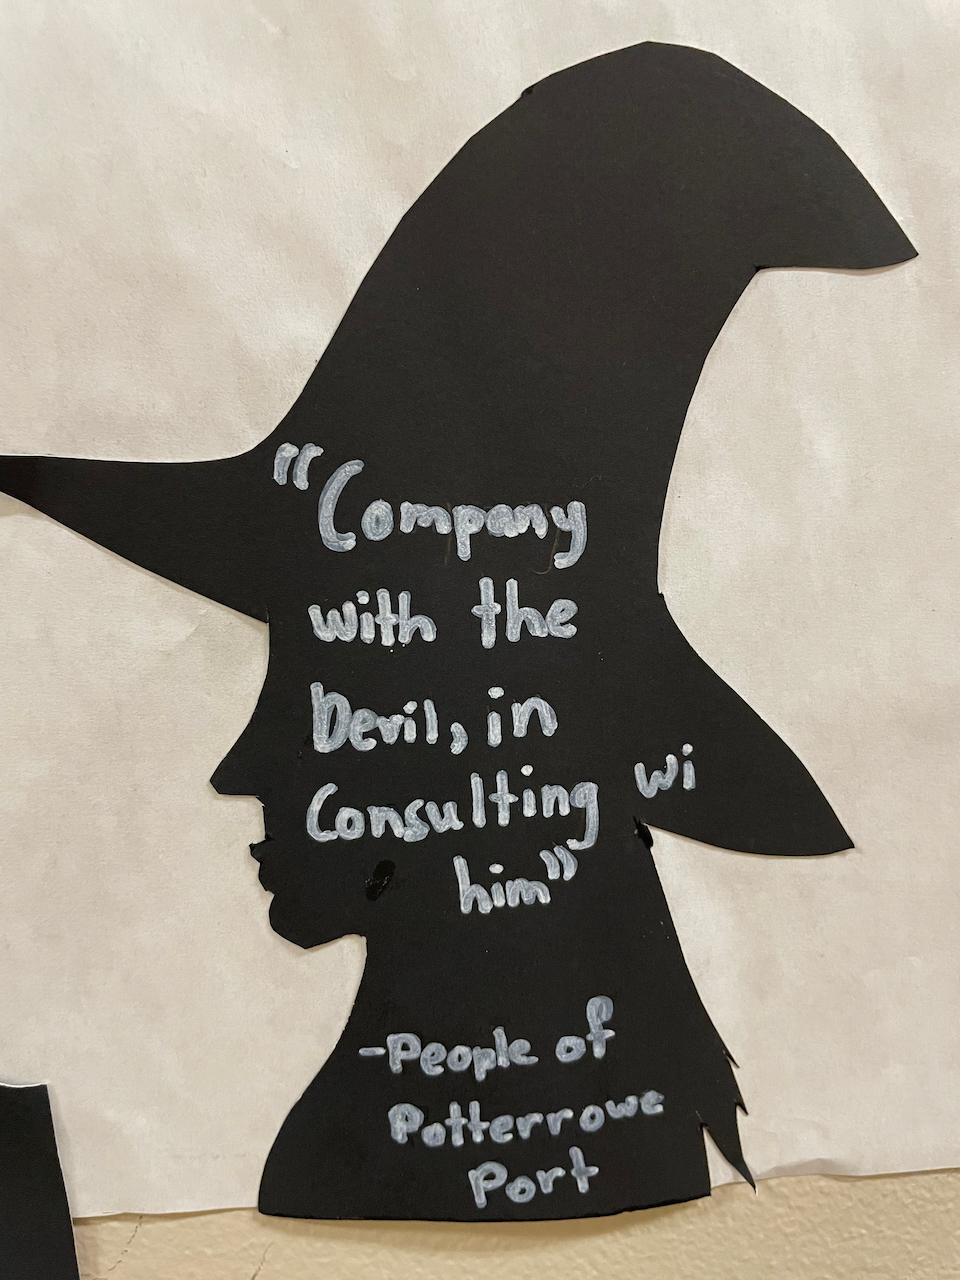 "Company
with the
Devil, in
Consulting wi
him"
-People of
Potterrowe
Port